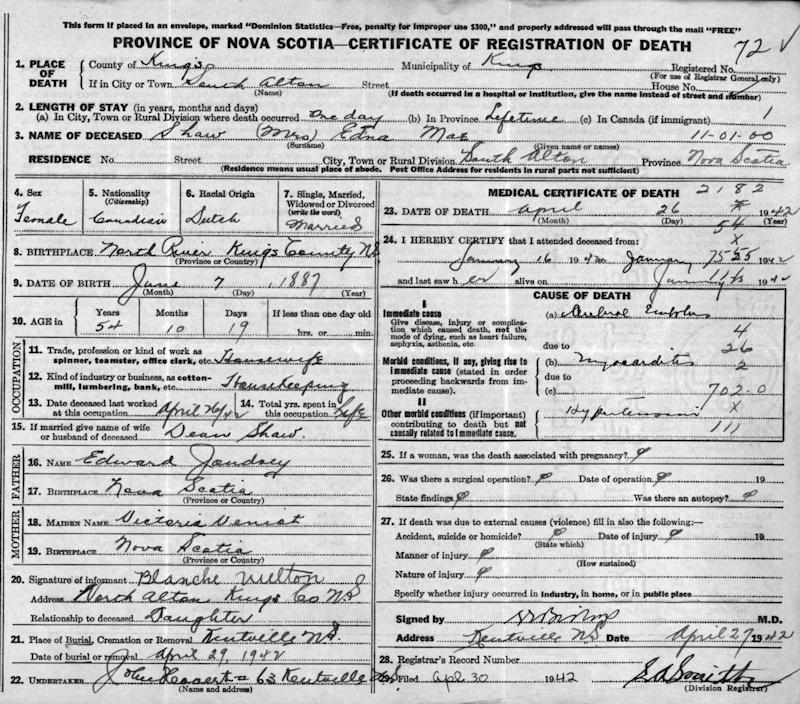 This form if placed in an envelope, marked "Dominion Statistics—Free, penalty for improper use $300," and properly addressed will pass through the mail "FREE"
PROVINCE OF NOVA SCOTIA—CERTIFICATE OF REGISTRATION OF DEATH
72
1. PLACE OF DEATH
County of Kings
Municipality of Kings
Registered No.
(For use of Registrar General only)
If in City or Town South Alton Street House No.
(Name) (If death occurred in a hospital or institution, give the name instead of street and number)
2. LENGTH OF STAY (in years, months and days)
(a) In City, Town or Rural Division where death occurred One day (b) In Province Lifetime (c) In Canada (if immigrant) 1
3. NAME OF DECEASED Shaw (Mrs) Edna Mae 11-01-00
(Surname) (Given name or names)
RESIDENCE No. Street City, Town or Rural Division South Alton Province Nova Scotia
(Residence means usual place of abode. Post Office Address for residents in rural parts not sufficient)
4. Sex Female
5. Nationality (Citizenship) Canadian
6. Racial Origin Dutch
7. Single, Married, Widowed or Divorced (write the word) Married
8. BIRTHPLACE North River Kings County NS
(Province or Country)
9. DATE OF BIRTH June 7, 1887
(Month) (Day) (Year)
10. AGE in Years Months Days If less than one day old
54 10 19 hrs. or min.
OCCUPATION
11. Trade, profession or kind of work as spinner, teamster, office clerk, etc. Housewife
12. Kind of industry or business, as cotton-mill, lumbering, bank, etc. Housekeeping
13. Date deceased last worked at this occupation April 26/42
14. Total yrs. spent in this occupation Life
15. If married give name of wife or husband of deceased Dean Shaw.
FATHER
16. NAME Edward
17. BIRTHPLACE Nova Scotia
(Province or Country)
MOTHER
18. MAIDEN NAME Victoria
19. BIRTHPLACE Nova Scotia
(Province or Country)
20. Signature of informant Blanche
Address North Alton Kings Co NS
Relationship to deceased Daughter
21. Place of Burial, Cremation or Removal Kentville NS.
Date of burial or removal April 29, 1942
22. UNDERTAKER Kentville
(Name and address)
MEDICAL CERTIFICATE OF DEATH 2182
23. DATE OF DEATH April 26 1942
(Month) (Day) (Year)
54
24. I HEREBY CERTIFY that I attended deceased from:
January 16 January 1942
and last saw her alive on January
CAUSE OF DEATH
I
Immediate cause
Give disease, injury or complication which caused death, not the mode of dying, such as heart failure, asphyxia, asthenia, etc.
(a) Cerebral Embolus
4
due to 26
Morbid conditions, if any, giving rise to immediate cause (stated in order proceeding backwards from immediate cause).
(b) Myocarditis
2
due to
(c) 702.0
X
II
Other morbid conditions (if important) contributing to death but not causally related to immediate cause.
Hypertension
111
25. If a woman, was the death associated with pregnancy?
26. Was there a surgical operation? Date of operation 19
State findings Was there an autopsy?
27. If death was due to external causes (violence) fill in also the following:—
Accident, suicide or homicide? Date of injury 19
(State which)
Manner of injury
(How sustained)
Nature of injury
Specify whether injury occurred in Industry, in home, or in public place
Signed by M.D.
Address Kentville NS Date April 27 1942
28. Registrar's Record Number
29. Filed Apl 30 1942
(Division Registrar)